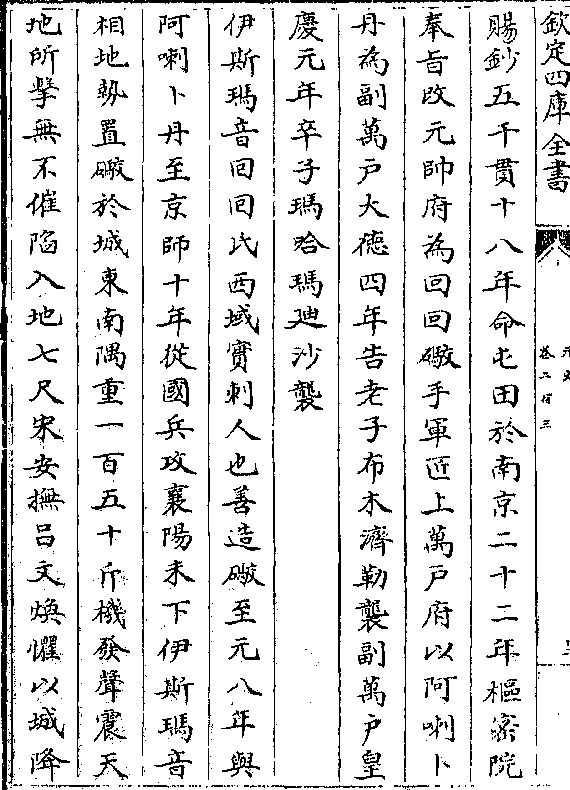 欽定四庫全書
元史
卷二百三
賜鈔五千貫十八年命屯田於南京二十二年樞密院
奉旨改元帥府為回回礮手軍匠上萬戸府以阿喇卜
丹為副萬戸大德四年告老子布木濟勒襲副萬戸皇
慶元年卒子瑪哈瑪廸沙襲
伊斯瑪音回回氏西域實刺人也善造礮至元八年與
阿喇卜丹至京師十年從國兵攻襄陽未下伊斯瑪音
相地勢置礮於城東南隅重一百五十斤機發聲震天
地所擊無不催陷入地七尺宋安撫吕文煥懼以城降